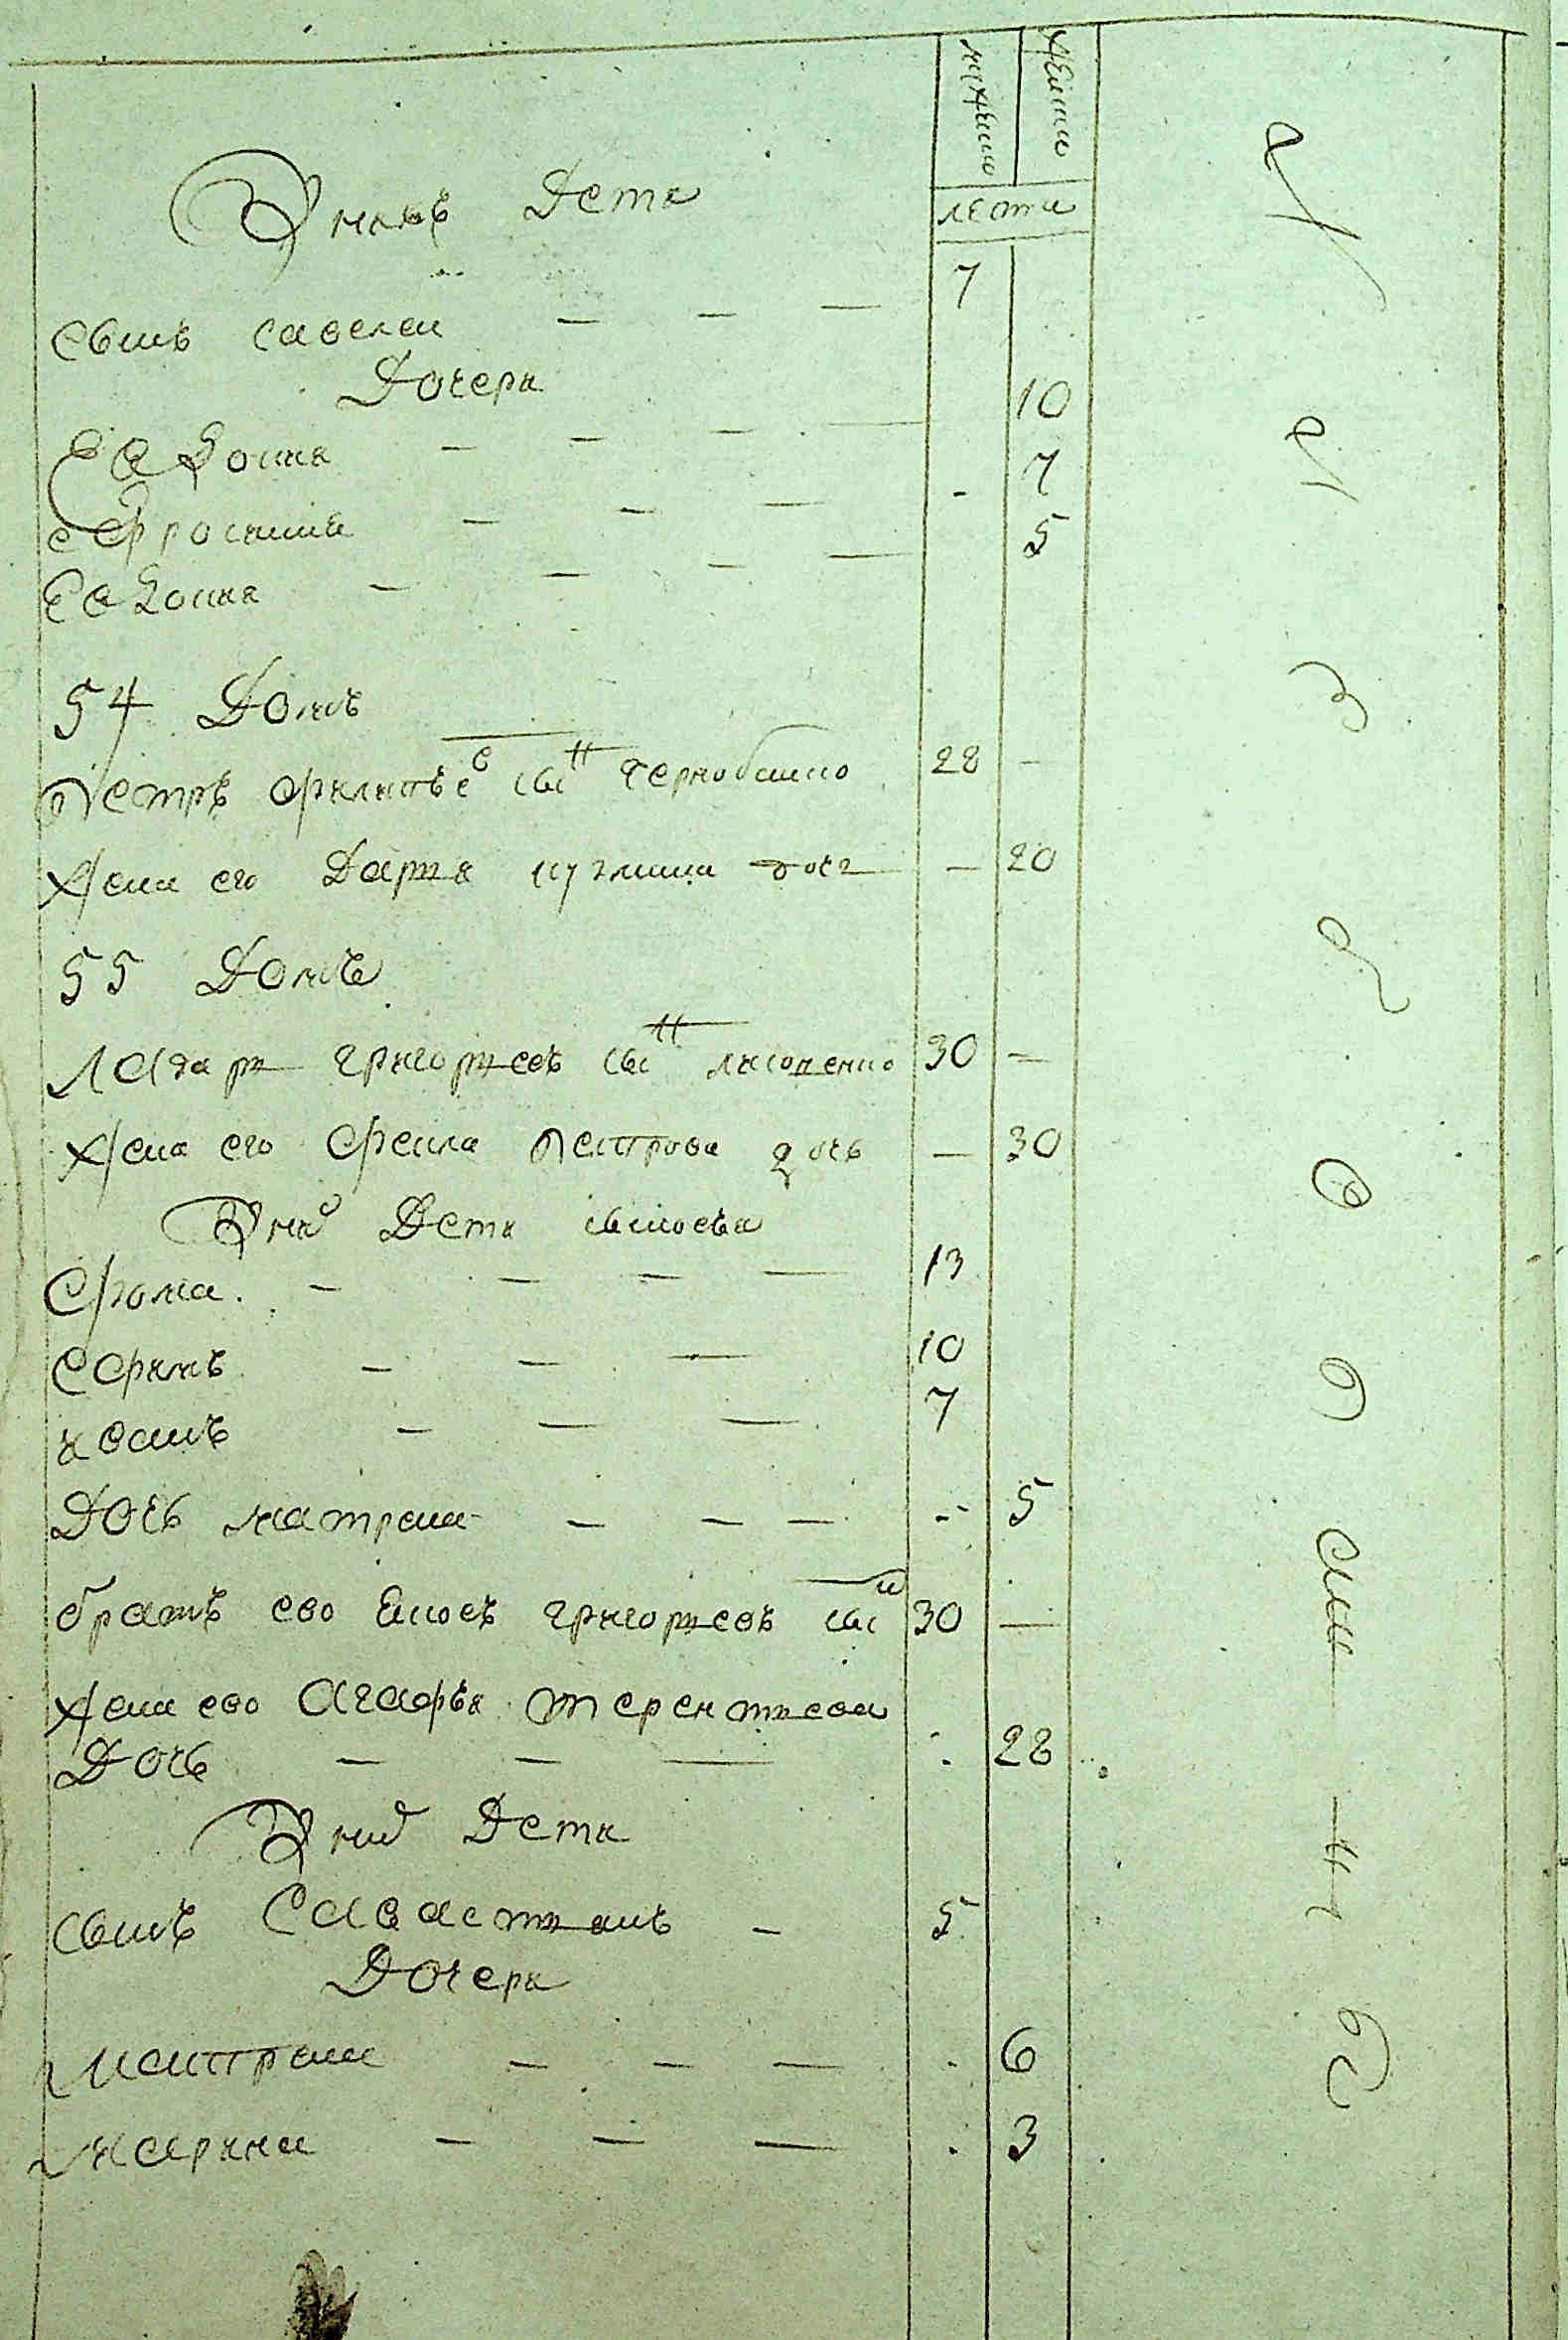 мужеска женска
лета
У нихъ Дети
сынъ савелеи — — — 7
Дочери
Евдокия — — — — 10
ефросиния — — — 7
Евдокия — — — — 5
54 Домъ
Петръ филипьевъ сынъ 28 —
Жена его Дария кузмина дочь — 20
55 Домъ
Лазарь григориевъ сынъ 30 —
Жена его фекла Петрова дочь — 30
У них Дети сыновья
Фома — — — — 13
ефимъ — — — 10
иванъ — — — 7
Дочь матрена — — — 5
братъ ево яковъ григориевъ сын 30 —
Жена ево Агафья терентиева
Дочь — — — 28
У них Дети
сынъ Савастиянъ — 5
Дочери
Матрена — — — 6
Марина — — — 3